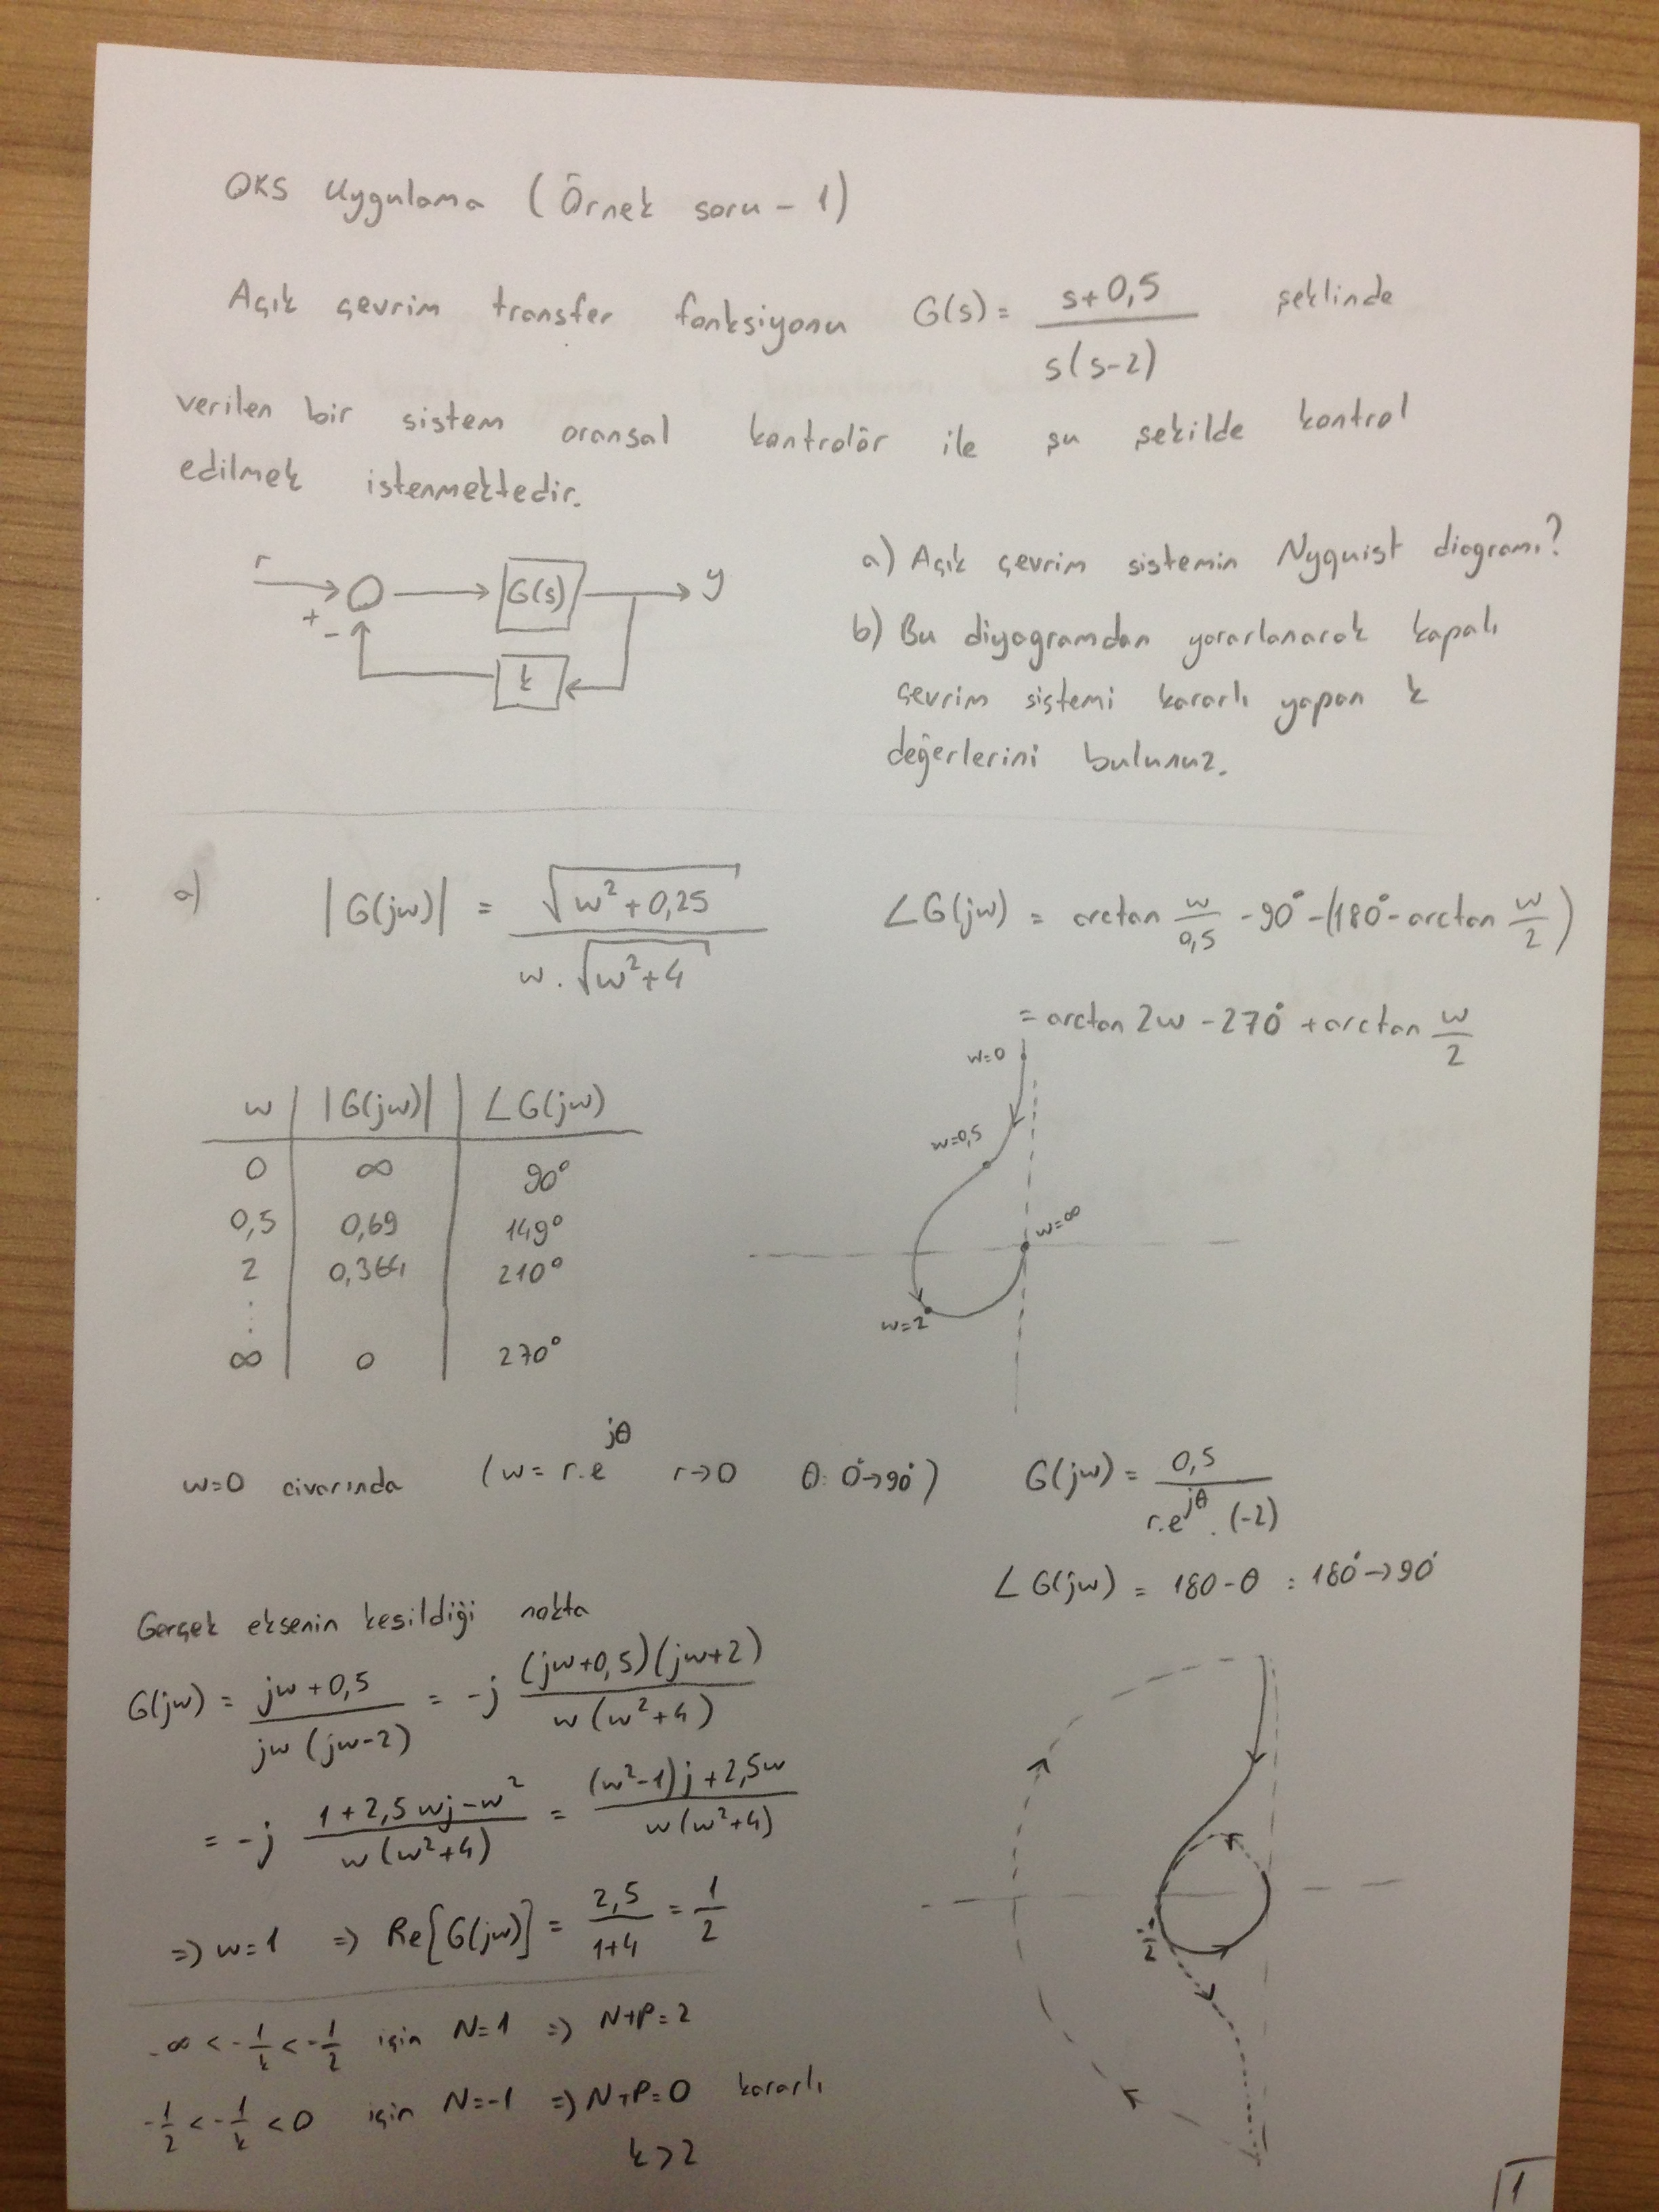 OKS Uygulama (Örnek soru - 1)
Açık çevrim transfer fonksiyonu G(s) = (s+0,5) / (s(s-2)) şeklinde
verilen bir sistem oransal kontrolör ile şu şekilde kontrol
edilmek istenmektedir.
r + - G(s) y
k
a) Açık çevrim sistemin Nyquist diagramı?
b) Bu diyagramdan yararlanarak kapalı
çevrim sistemi kararlı yapan k
değerlerini bulunuz.
a) |G(jw)| = √(w²+0,25) / (w.√(w²+4))
∠G(jw) = arctan w/0,5 - 90° - (180° - arctan w/2)
= arctan 2w - 270° + arctan w/2
w | |G(jw)| | ∠G(jw)
0 | ∞ | 90°
0,5 | 0,69 | 149°
2 | 0,364 | 210°
⋮
∞ | 0 | 270°
w=0
w=0,5
w=∞
w=2
w=0 civarında (w = r.e^jθ r→0 θ: 0°→90°) G(jw) = 0,5 / (r.e^jθ . (-2))
∠G(jw) = 180-θ : 180°→90°
Gerçek eksenin kesildiği nokta
G(jw) = (jw+0,5) / (jw(jw-2)) = -j (jw+0,5)(jw+2) / (w(w²+4))
= -j (1+2,5wj-w²) / (w(w²+4)) = ((w²-1)j+2,5w) / (w(w²+4))
⇒ w=1 ⇒ Re[G(jw)] = 2,5/(1+4) = 1/2
-1/2
-∞ < -1/k < -1/2 için N=1 ⇒ N+P=2
-1/2 < -1/k < 0 için N=-1 ⇒ N+P=0 kararlı
k>2
1